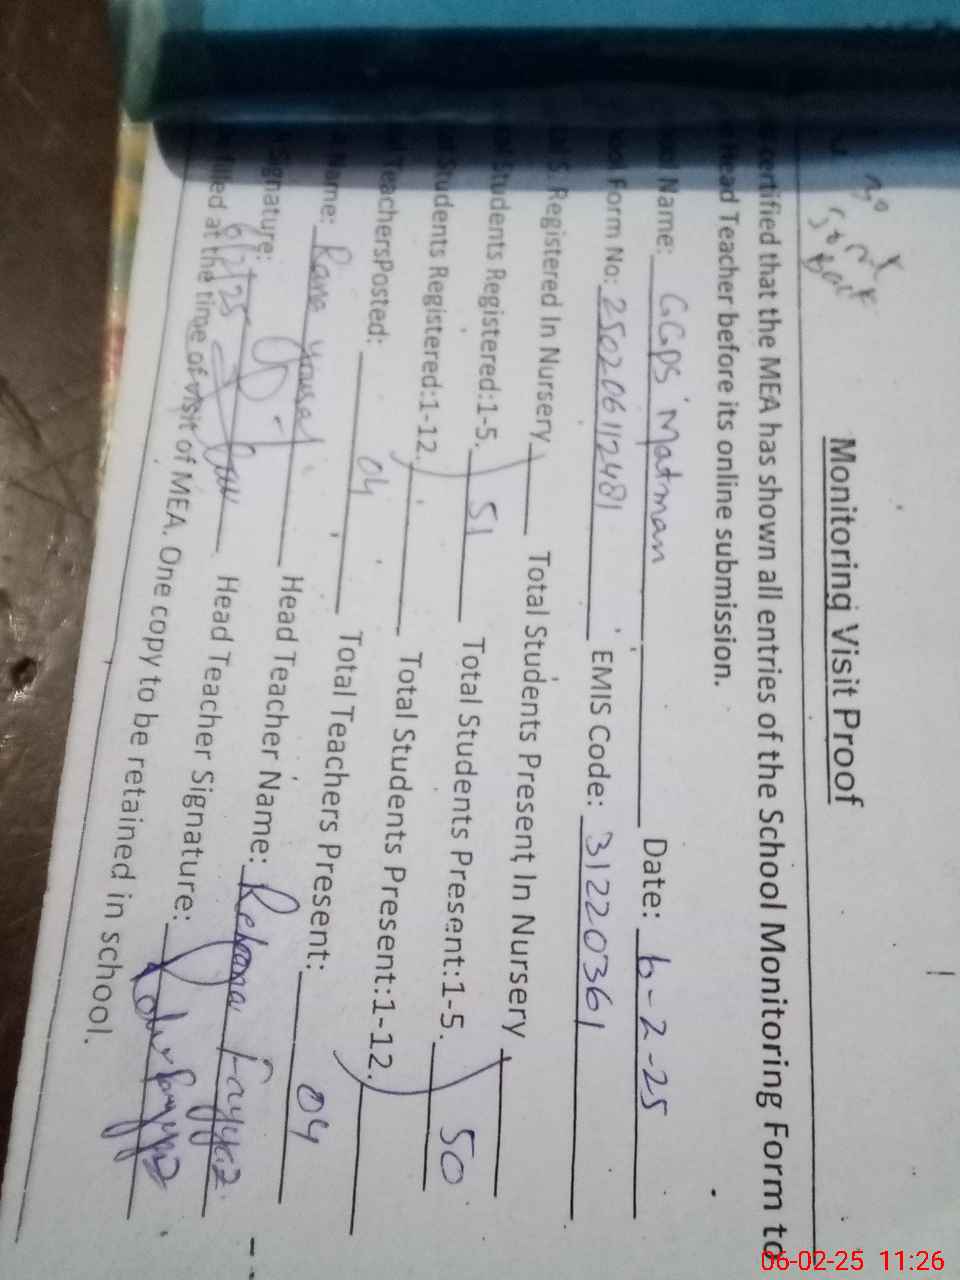 Monitoring Visit Proof
certified that the MEA has shown all entries of the School Monitoring Form to
Head Teacher before its online submission.
Name: GGPS Matman Date: 6-2-25
Form No: 2502061 12481 EMIS Code: 31220361
S. Registered In Nursery Total Students Present In Nursery
Students Registered:1-5. 51 Total Students Present:1-5. 50
Students Registered:1-12. Total Students Present:1-12.
TeachersPosted: 04 Total Teachers Present: 04
Name: Rana Yousaf Head Teacher Name: Rehana Fayyaz
Signature: Head Teacher Signature:
6/2/25
filled at the time of visit of MEA. One copy to be retained in school.
06-02-25 11:26